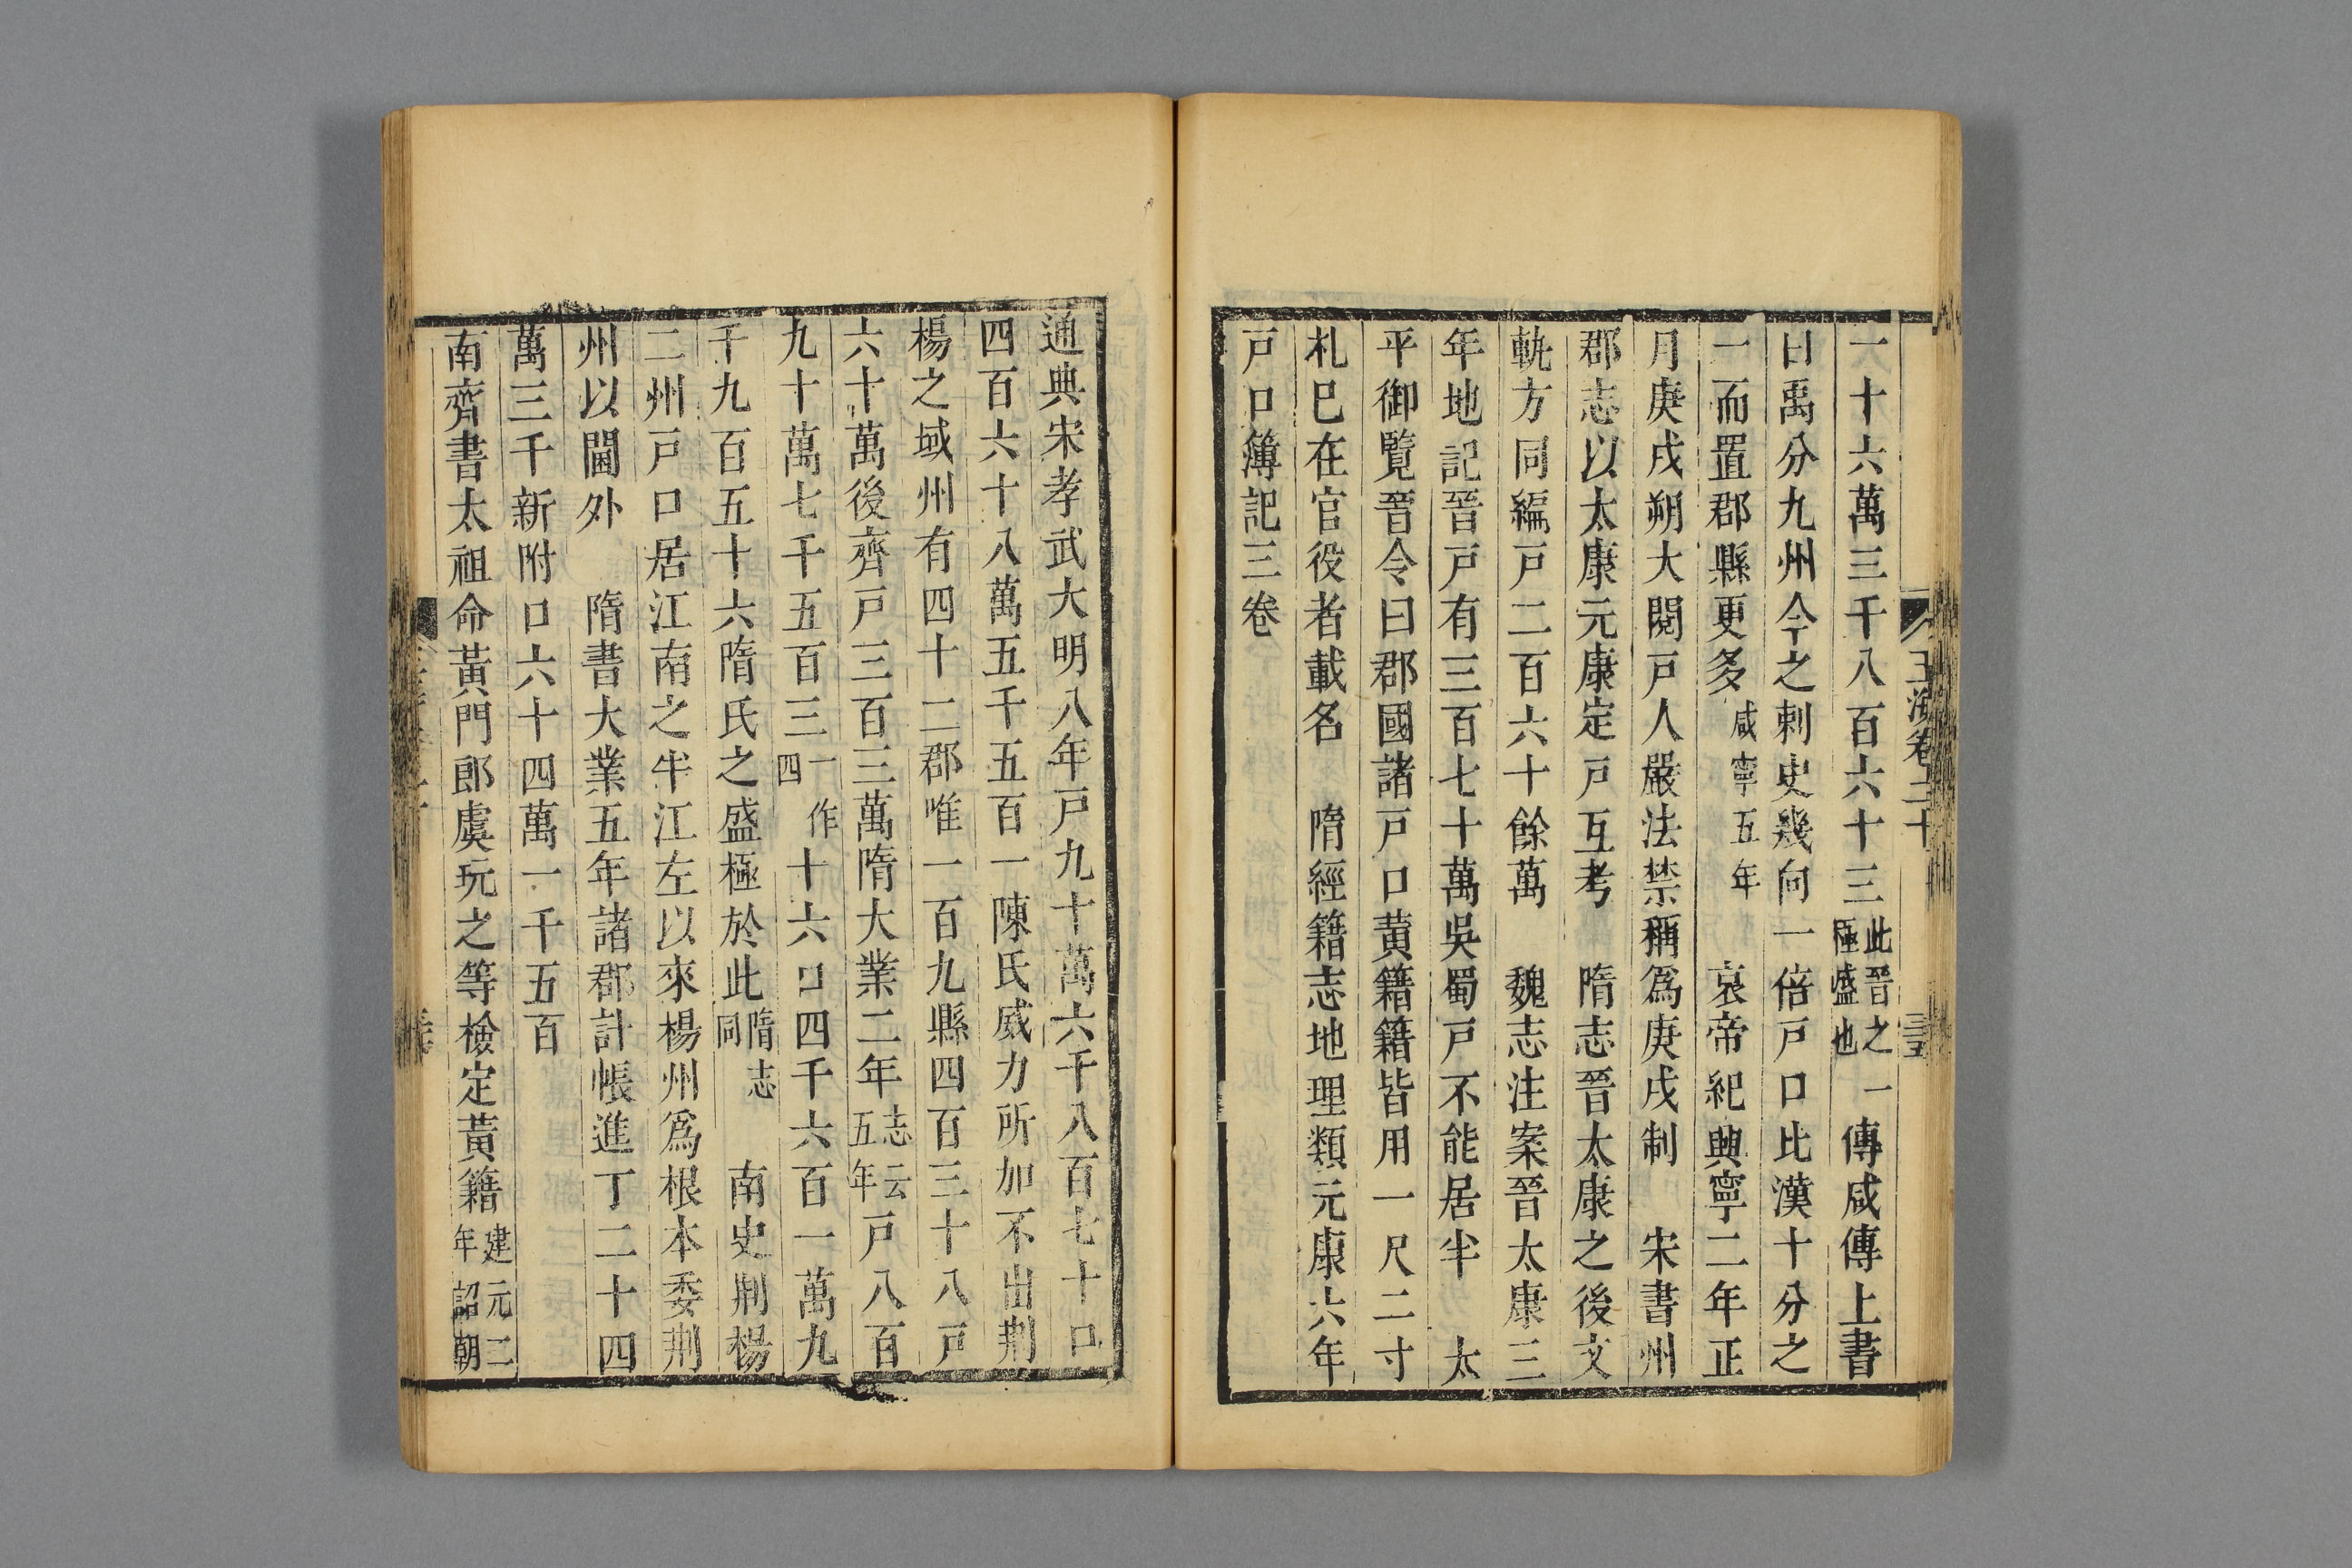 一十六萬三千八百六十三此晉之極盛也一傳咸傳上書
曰禹分九州今之刺史幾向一倍戸口比漢十分之
一而置郡縣更多咸寧五年　哀帝紀興寧二年正
月庚戌朔大閱戸人嚴法禁稱爲庚戌制　宋書州
郡志以太康元康定戸互考　隋志晉太康之後文
軌方同編戸二百六十餘萬　魏志注案晉太康三
年地記晉戸有三百七十萬吳蜀戸不能居半　太
平御覽晉令曰郡國諸戸口黄籍籍皆用一尺二寸
札巳在官役者載名　隋經籍志地理類元康六年
戸口簿記三卷
玉海卷二十
通典宋孝武大明八年戸九十萬六千八百七十口
四百六十八萬五千五百一陳氏威力所加不出荆
楊之域州有四十二郡唯一百九縣四百三十八戸
六十萬後齊戸三百三萬隋大業二年志云五年戸八百
九十萬七千五百三一作四十六口四千六百一萬九
千九百五十六隋氏之盛極於此隋志同　南史荆楊
二州戸口居江南之半江左以來楊州爲根本委荆
州以閫外　隋書大業五年諸郡計帳進丁二十四
萬三千新附口六十四萬一千五百
南齊書太祖命黃門郎虞玩之等檢定黃籍建元二年詔朝